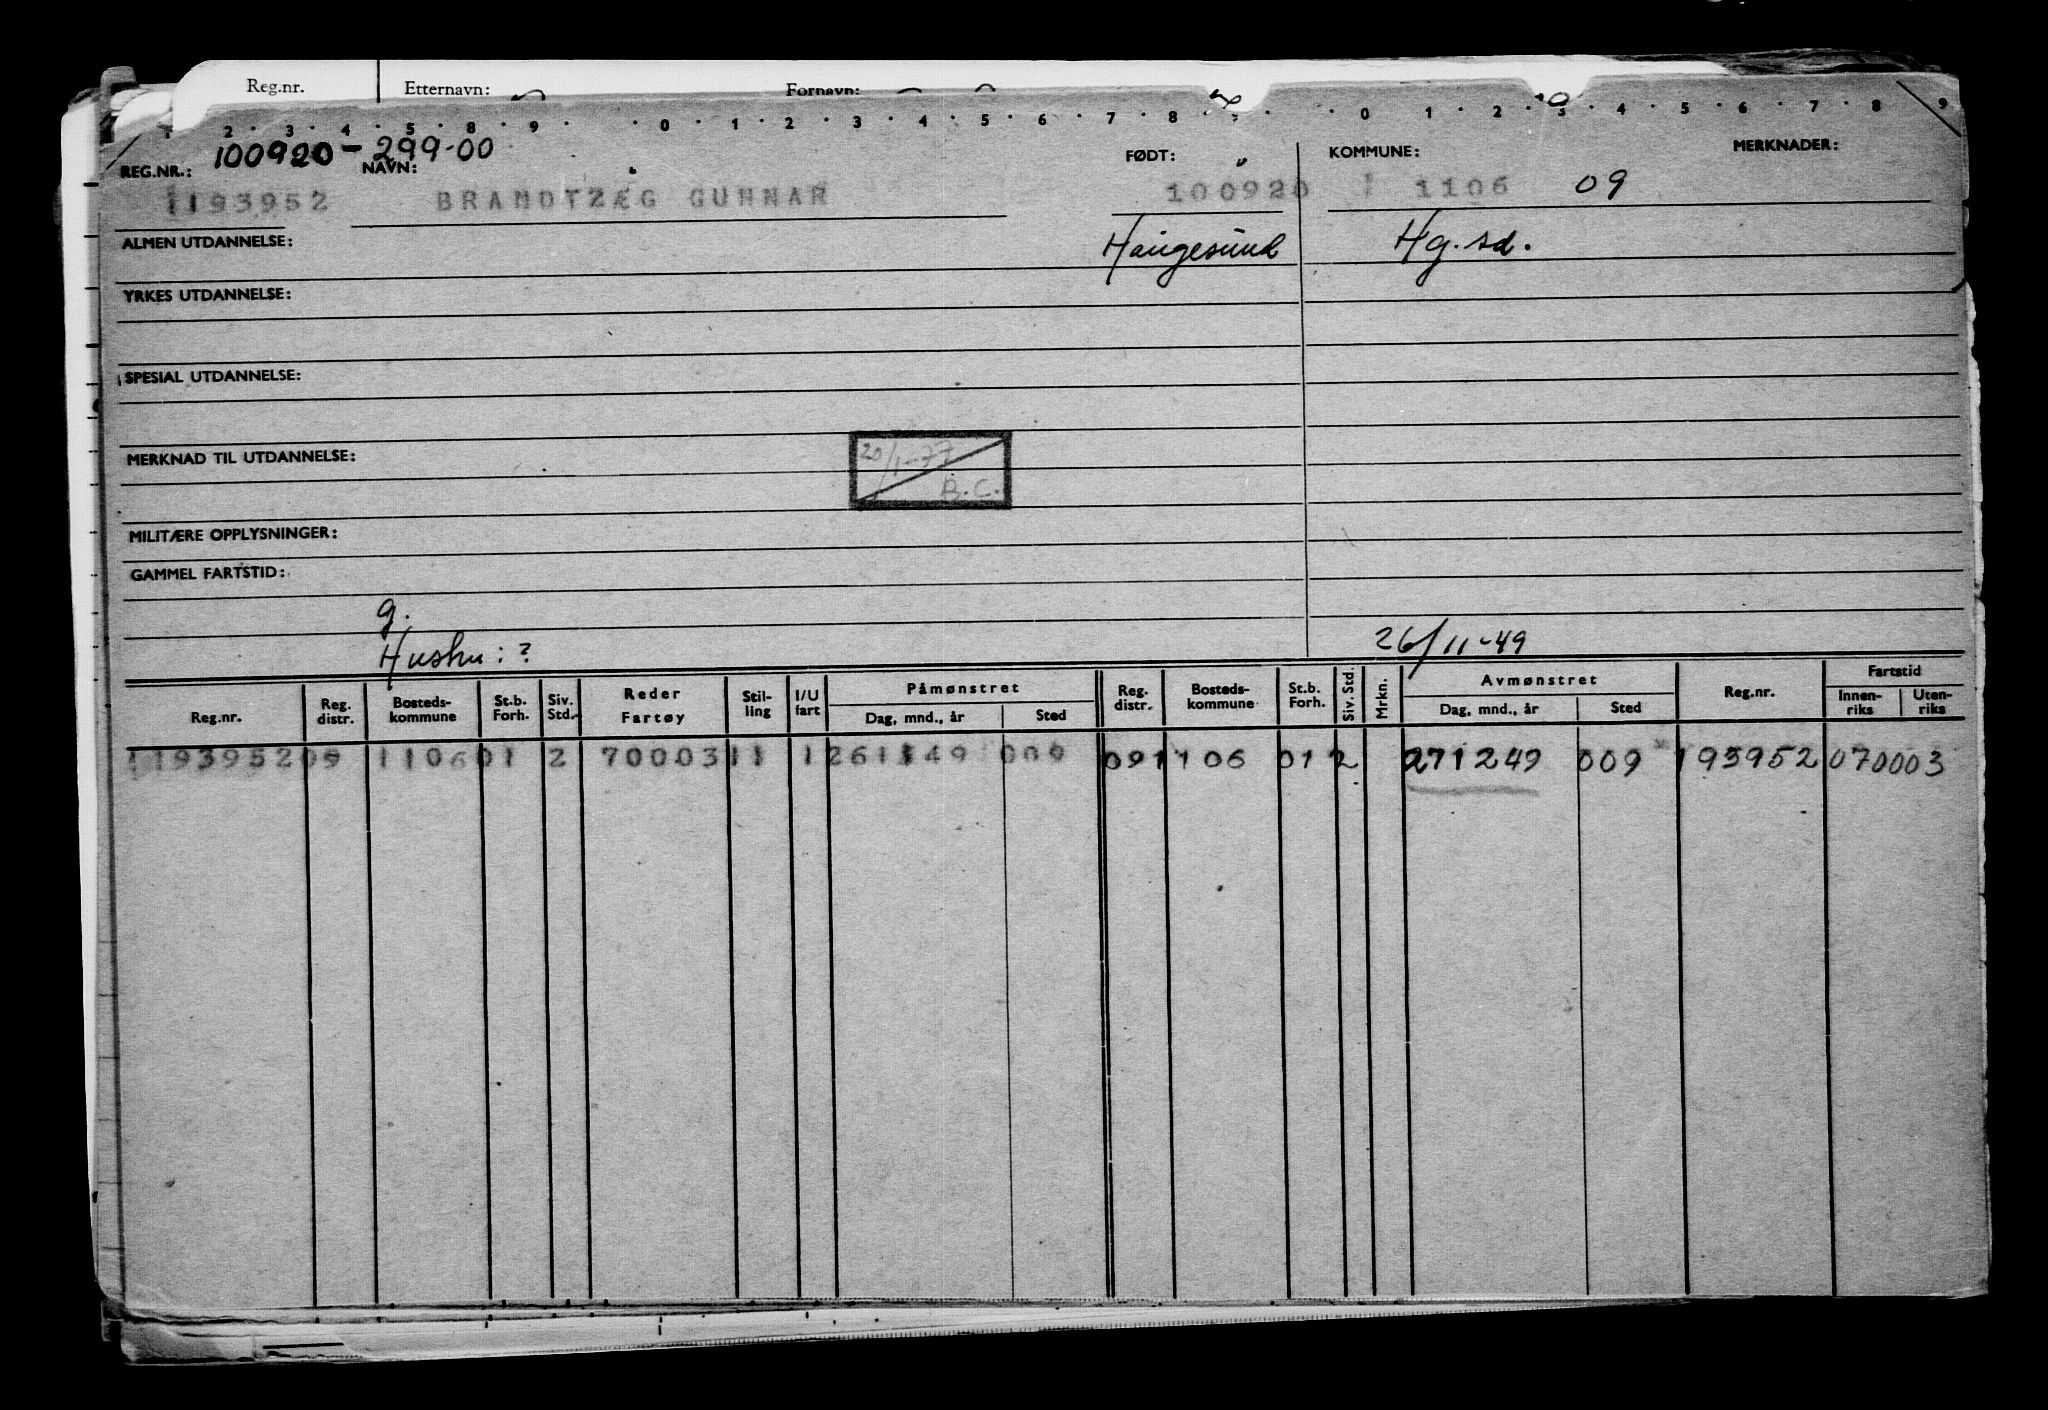 Reg.nr. Etternavn: Fornavn:
1 2 3 4 5 8 9 0 1 2 3 4 5 6 7 8 0 1 2 3 4 5 6 7 8 9
REG.NR.: 100920-299-00 NAVN: FØDT: KOMMUNE: MERKNADER:
1193952 BRANDTZÆG GUNNAR 100920 1106 09
ALMEN UTDANNELSE: Haugesund Hg.sd.
YRKES UTDANNELSE:
SPESIAL UTDANNELSE:
MERKNAD TIL UTDANNELSE: 20/1-77 B.C.
MILITÆRE OPPLYSNINGER:
GAMMEL FARTSTID:
g.
Hushu: ? 26/11-49
Reg.nr. Reg. distr. Bosteds- kommune St.b. Forh. Siv. Std. Reder Fartøy Stil- ling I/U fart Påmønstret Dag, mnd., år Sted Reg. distr. Bosteds- kommune St.b. Forh. Siv. Std. Mrkn. Avmønstret Dag, mnd., år Sted Reg.nr. Fartstid Innen- riks Uten- riks
1193952 09 1106 01 2 70003 11 1 261149 009 09 1106 01 2 271249 009 193952 070003